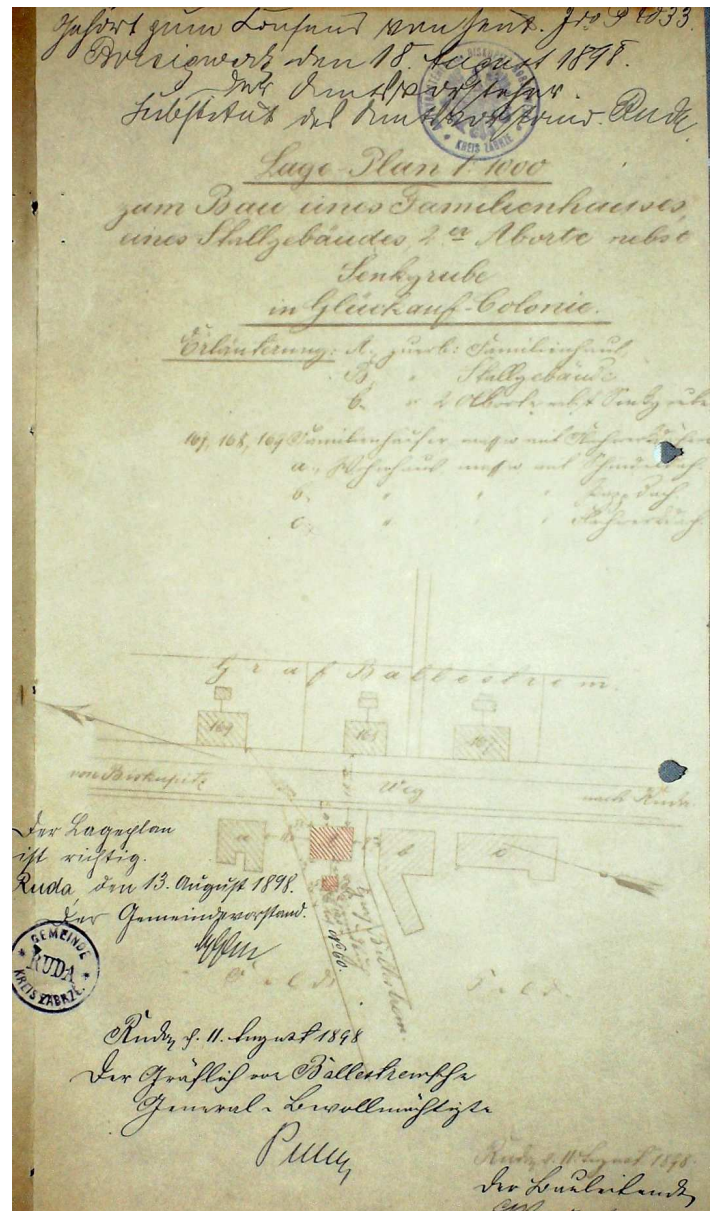 Gehört zum Consens von heut. Jro P 1033
Borsigwerk den 18. August 1898.
Der Amtsvorsteher.
Substitut des Amtsvorstand. Ruda
KREIS ZABRZE
Lage-Plan 1:1000
zum Bau eines Familienhauses,
eines Stallgebäudes, 2er Aborte nebst
Senkgrube
in Glückauf-Colonie.
Erläuterung: A, zuerb: Familienhaus
B, " Stallgebäude
C, " 2 Aborte nebst Senkgrube
167, 168, 169 Familienhäuser massiv mit
a, Wohnhaus massiv mit Schindeldach.
b, " " " Pappdach
c, " " "
Graf Ballestrem.
169 168 167
von Biskupitz Weg nach Ruda
a b c
Graf Ballestrem.
No 60.
Feld. Feld.
Der Lageplan
ist richtig.
Ruda, den 13. August 1898.
Der Gemeindevorstand.
GEMEINDE
RUDA
KREIS ZABRZE
Ruda, d. 11. August 1898
Der Gräflich von Ballestrem'sche
General-Bevollmächtigte
Ruda, d. 11. August 1898
Der Bauleitende